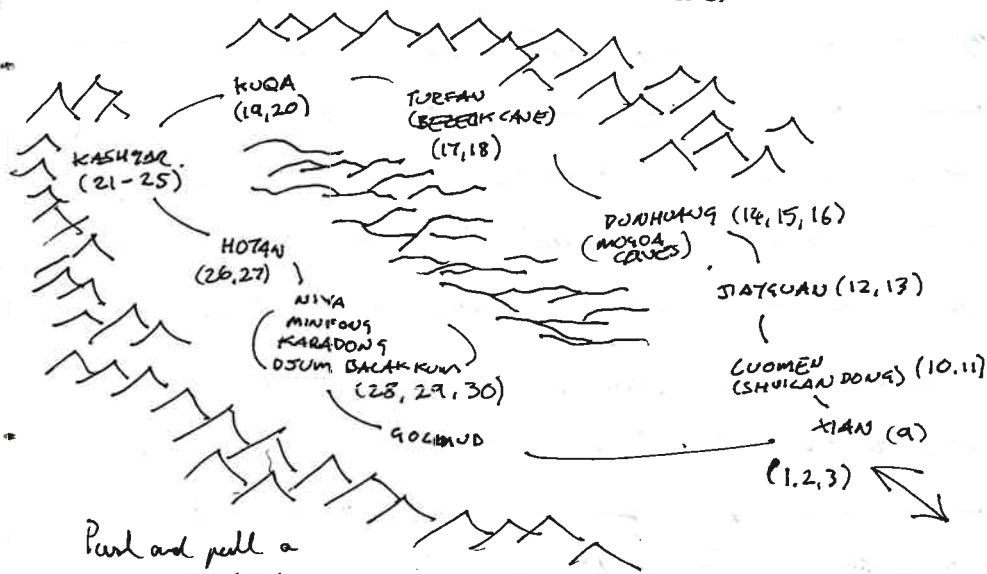 KUQA
(19,20)
TURFAN
(BEZEDIK CAVE)
(17,18)
KASHGAR.
(21-25)
DUNHUANG (14,15,16)
(MOGOA
CAVES)
HOTAN
(26,27)
JIAYGUAN (12,13)
NIYA
MINFONG
KARADONG
DJUM BALAK KUM
(28, 29, 30)
LUOMEN
(SHUILAN DONG) (10.11)
GOLMUD
XIAN (9)
(1.2,3)
Push and pull a